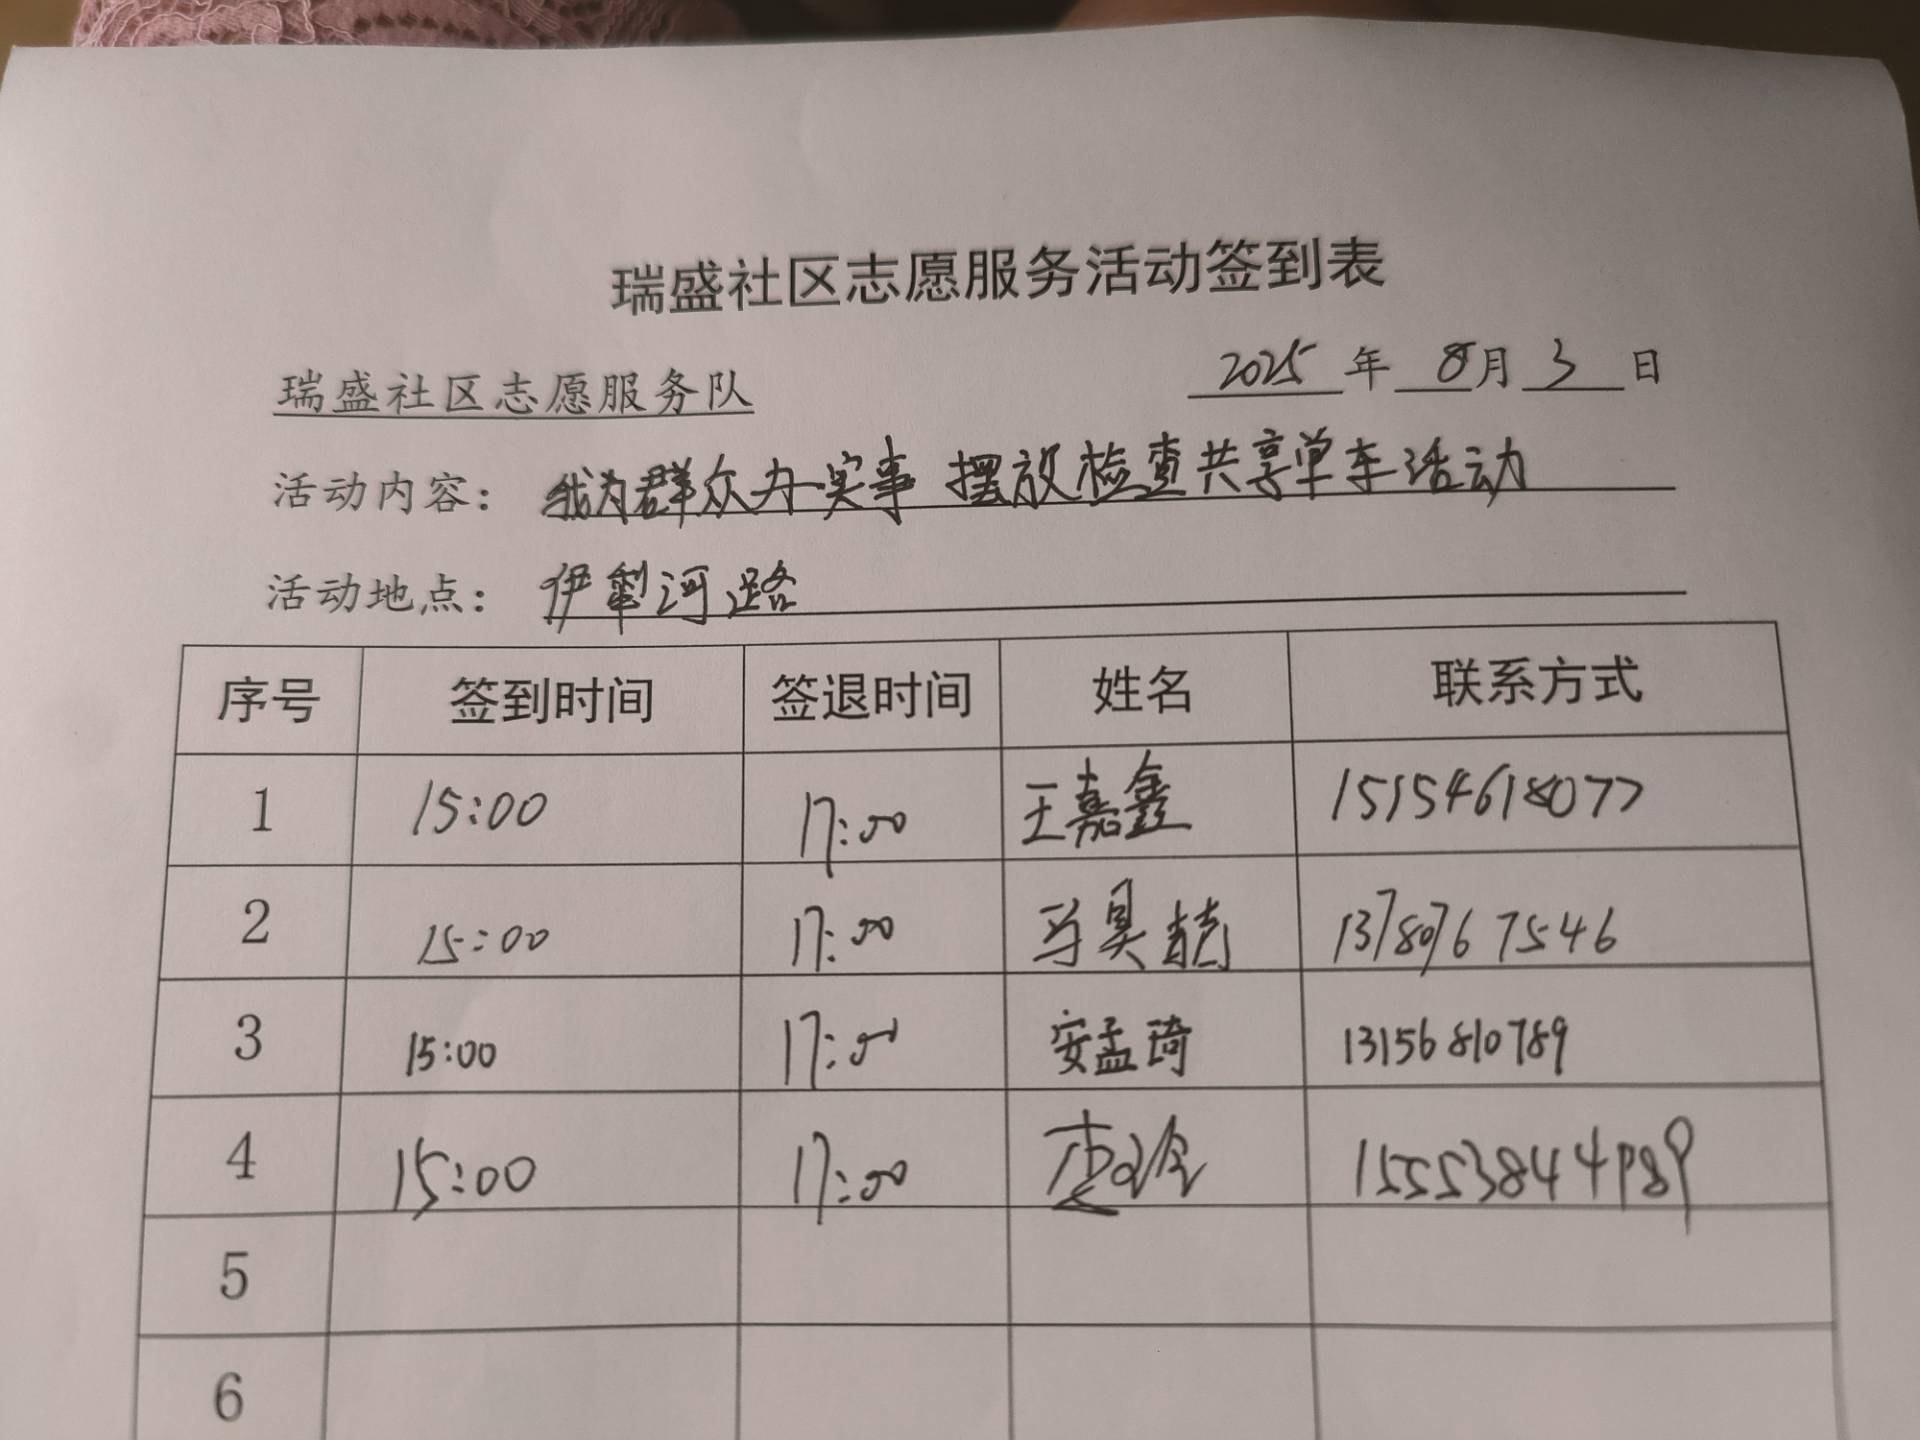 瑞盛社区志愿服务活动签到表
瑞盛社区志愿服务队 2025 年 8 月 3 日
活动内容： 我为群众办实事 摆放检查共享单车活动
活动地点： 伊犁河路
序号 签到时间 签退时间 姓名 联系方式
1 15:00 17:00 王嘉鑫 15154618077
2 15:00 17:00 13780767546
3 15:00 17:00 安孟琦 13156810789
4 15:00 17:00
5
6